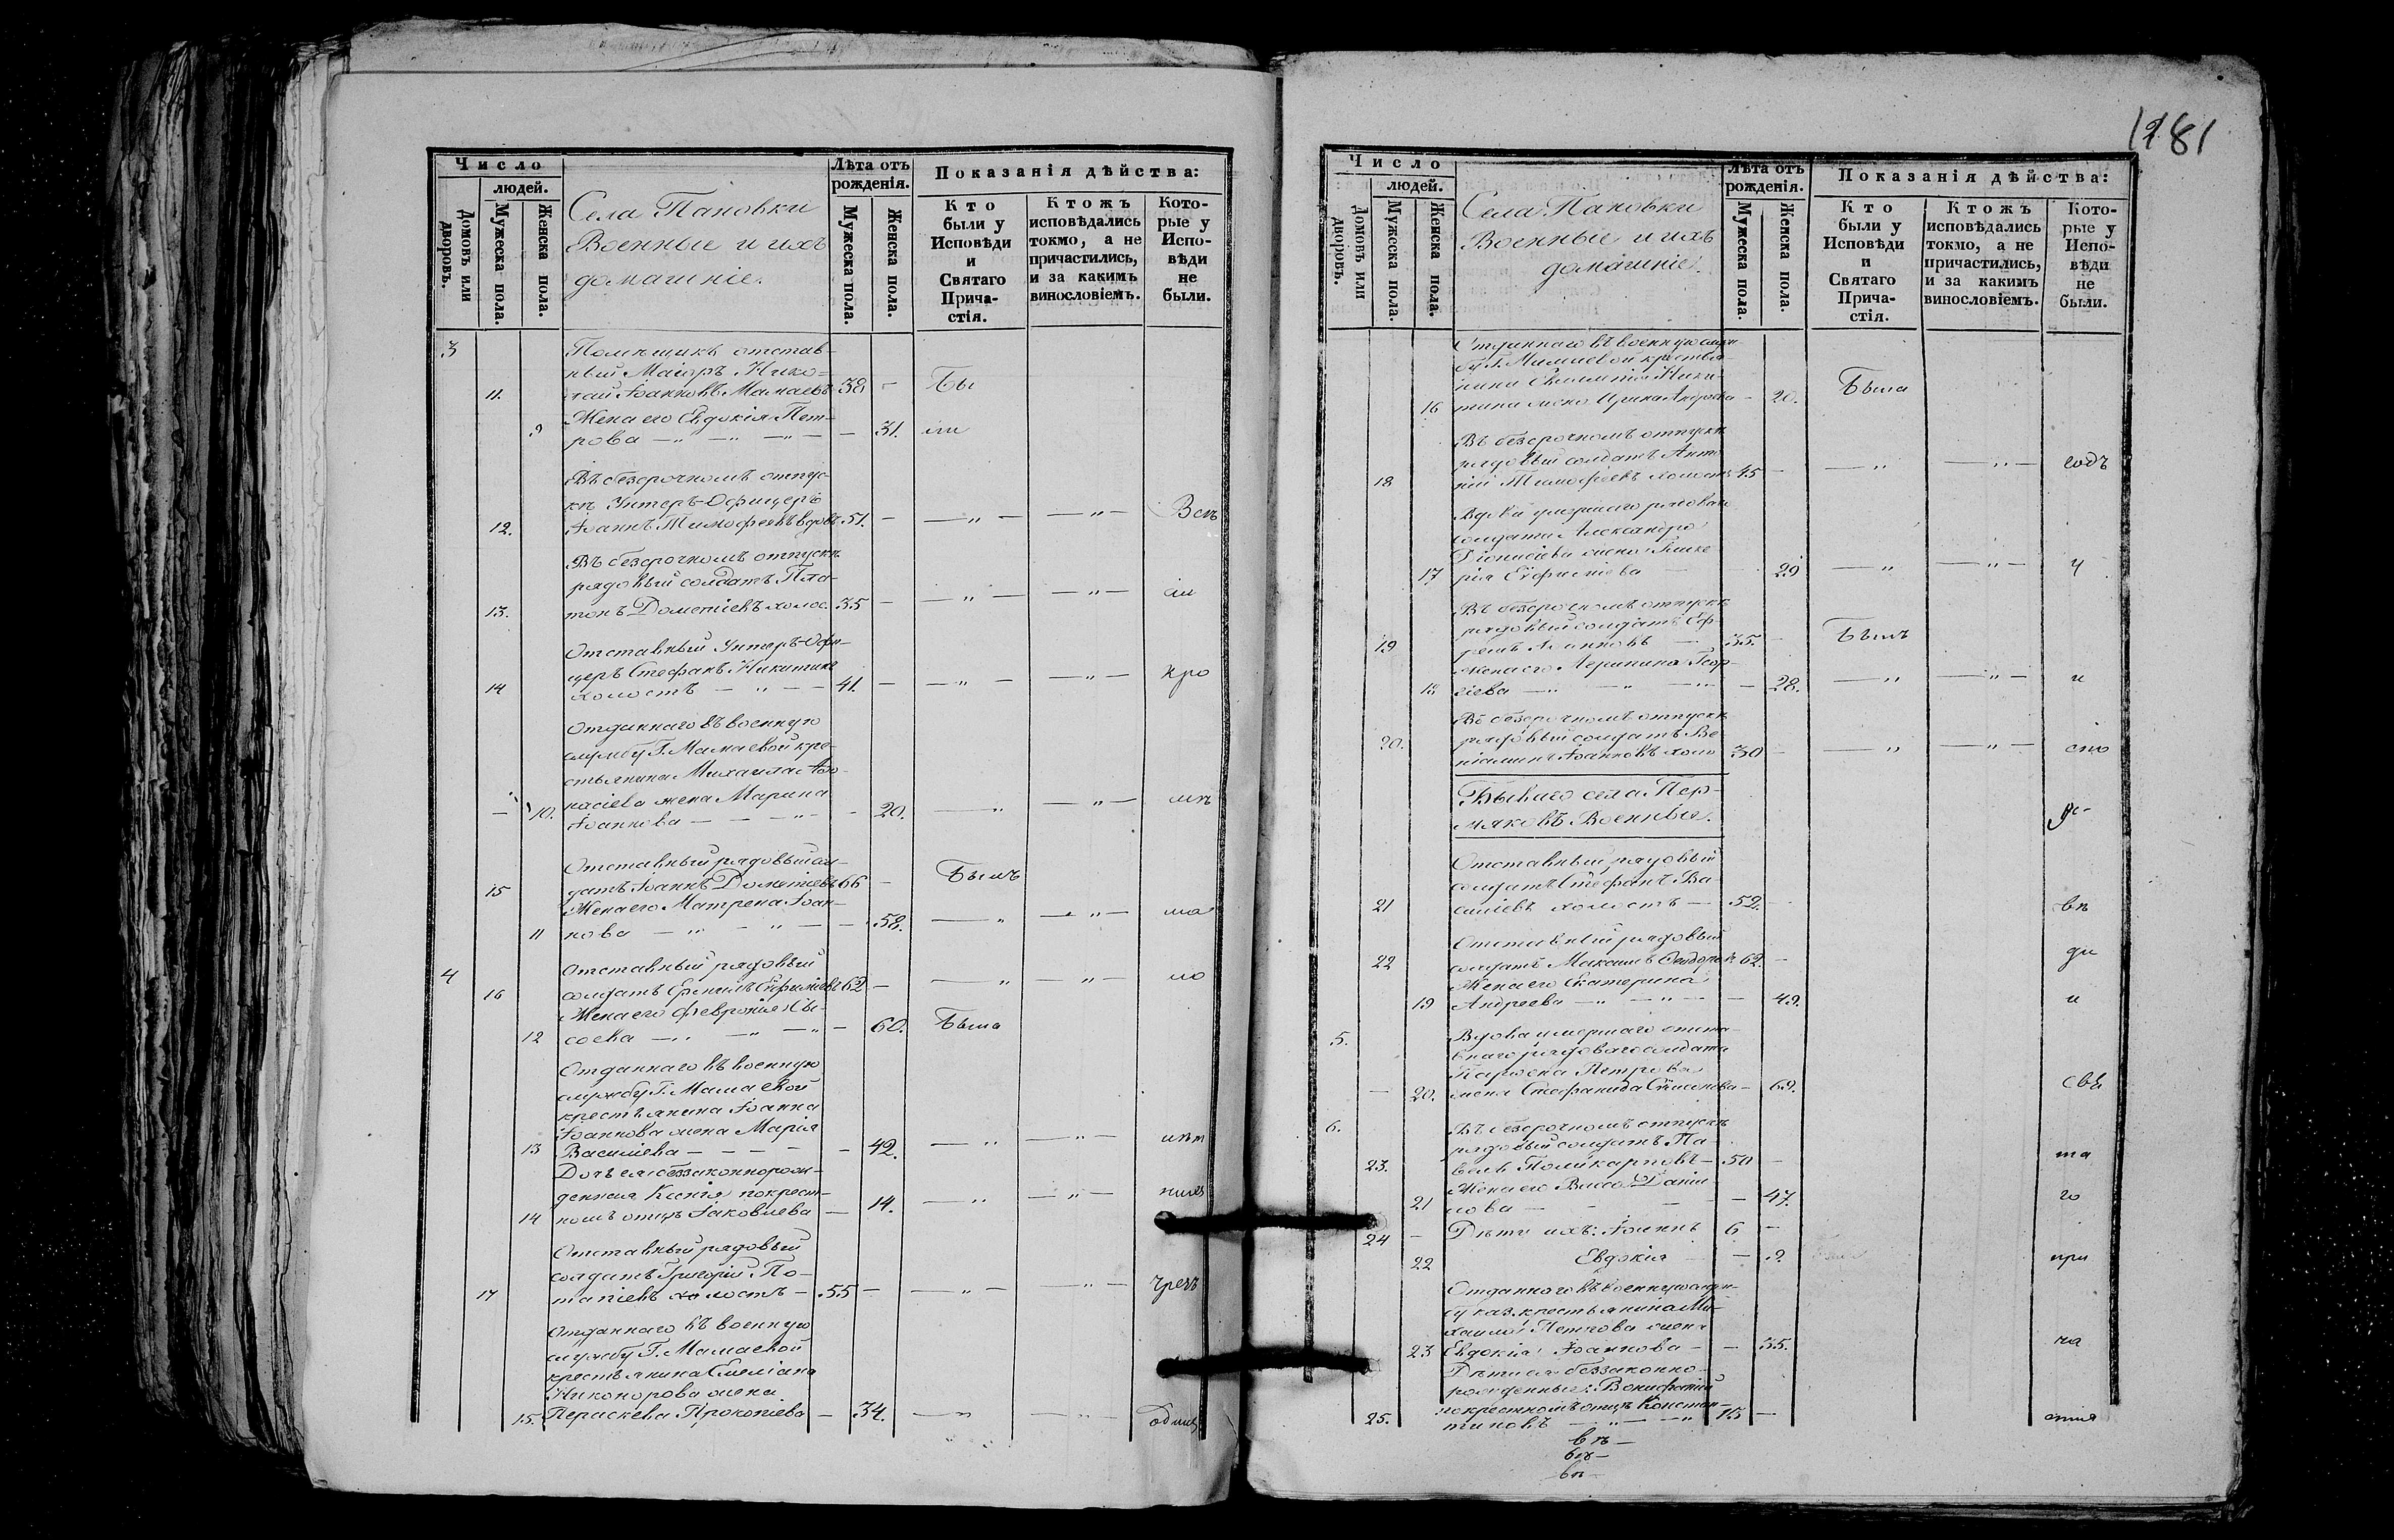 Число
людей.
Домовъ или дворовъ.
Мужеска пола.
Женска пола.
Села Пановки
Военные и ихъ
домашніе.
Лѣта отъ
рожденія.
Мужеска пола.
Женска пола.
Показанія дѣйства:
Кто
были у
Исповѣди
и
Святаго
Прича-
стія.
Ктожъ
исповѣдались
токмо, а не
причастились,
и за какимъ
винословіемъ.
Кото-
рые у
Испо-
вѣди
не
были.
3
Помѣщикъ отстав-
ный Маіоръ Нико-
11. лай Іоанновъ Мамаевъ 38 — Бы
Жена его Евдокія Пет-
9 рова — — 31. ли
Въ безсрочномъ отпус-
кѣ Унтеръ-Офицеръ
12. Іоаннъ Тимофеевъ вдовъ 51. —
Въ безсрочномъ отпускѣ
рядовый солдатъ Пла-
13. тонъ Дометіевъ холос. 35 —
Отставный Унтеръ-Офи-
церъ Стефанъ Никитинъ
14 холостъ — 41. — кро
Отданнаго въ военную
службу Г. Мамаевой кре-
стьянина Михаила Аѳа-
насіева жена Марина
— 10. Іоаннова — — 20.
Отставный рядовый сол-
15 датъ Іоаннъ Дометіевъ 66 — Былъ
Жена его Матрена Іоан-
11 нова — — 58.
4 Отставный рядовый
16 солдатъ 62 —
Жена его Февронія Сы-
12 соева — — 60. Была
Отданнаго въ военную
службу Г. Мамаевой
крестьянина Іоанна
Іоаннова жена Марія
13 Василіева — — 42.
Дочь ея беззаконнорож-
денная Ксенія по крест-
14 номъ отцѣ Іаковлева — 14.
Отставный рядовый
солдатъ Григорій По-
17 тапіевъ холостъ — 55 — чрезъ
Отданнаго въ военную
службу Г. Мамаевой
крестьянина Емеліана
Никонорова жена
15. Параскева Прокопіева — 34.
1281
Число
людей.
Домовъ или дворовъ.
Мужеска пола.
Женска пола.
Села Пановки
Военные и ихъ
домашніе.
Лѣта отъ
рожденія.
Мужеска пола.
Женска пола.
Показанія дѣйства:
Кто
были у
Исповѣди
и
Святаго
Прича-
стія.
Ктожъ
исповѣдались
токмо, а не
причастились,
и за какимъ
винословіемъ.
Кото-
рые у
Испо-
вѣди
не
были.
Отданнаго въ военную служ-
бу Г. Мамаевой крестья-
нина Ники-
16 тина жена Ирина Андреева — 20. Была
Въ безсрочномъ отпускѣ
рядовый солдатъ Анто-
18 ній Тимофеевъ холостъ 45 — годъ
Вдова умершаго рядоваго
солдата Александра
Діонисіева жена
17 29
Въ безсрочномъ отпускѣ
рядовый солдатъ Еф-
19 ремъ Іоанновъ — 35. — Былъ
жена его Агрипина Геор-
18 гіева — — 28. и
Въ безсрочномъ отпускѣ
20. рядовый солдатъ Ве-
ніаминъ Іоанновъ холо 30 —
Бывшаго села Пер-
мяковъ Военные.
Отставный рядовый
солдатъ Стефанъ Ва-
21 силіевъ холостъ — 52. —
Отставный рядовый
22 солдатъ Максимъ Ѳеодоровъ 62. —
Жена его Екатерина
19 Андреева — — 49. и
5. Вдова умершаго отста-
внаго рядоваго солдата
Петрова
— 20. жена Стефанида — 69.
6. Въ безсрочномъ отпускѣ
рядовый солдатъ Па-
23. велъ Поликарповъ — 50 — та
Жена его Васса Даніи-
21 лова — — 47. го
24 — Дѣти ихъ: Іоаннъ 6 —
22 Евдокія — 9. при
Отданнаго въ военную служ-
бу каз. крестьянина Ми-
хаила Петрова жена
23 Евдокія Іоаннова — — 35. ча
Дѣти ея беззаконно-
рожденныя: Вонифатій
по крестномъ отцѣ Констан-
25. тиновъ — 15 — стія